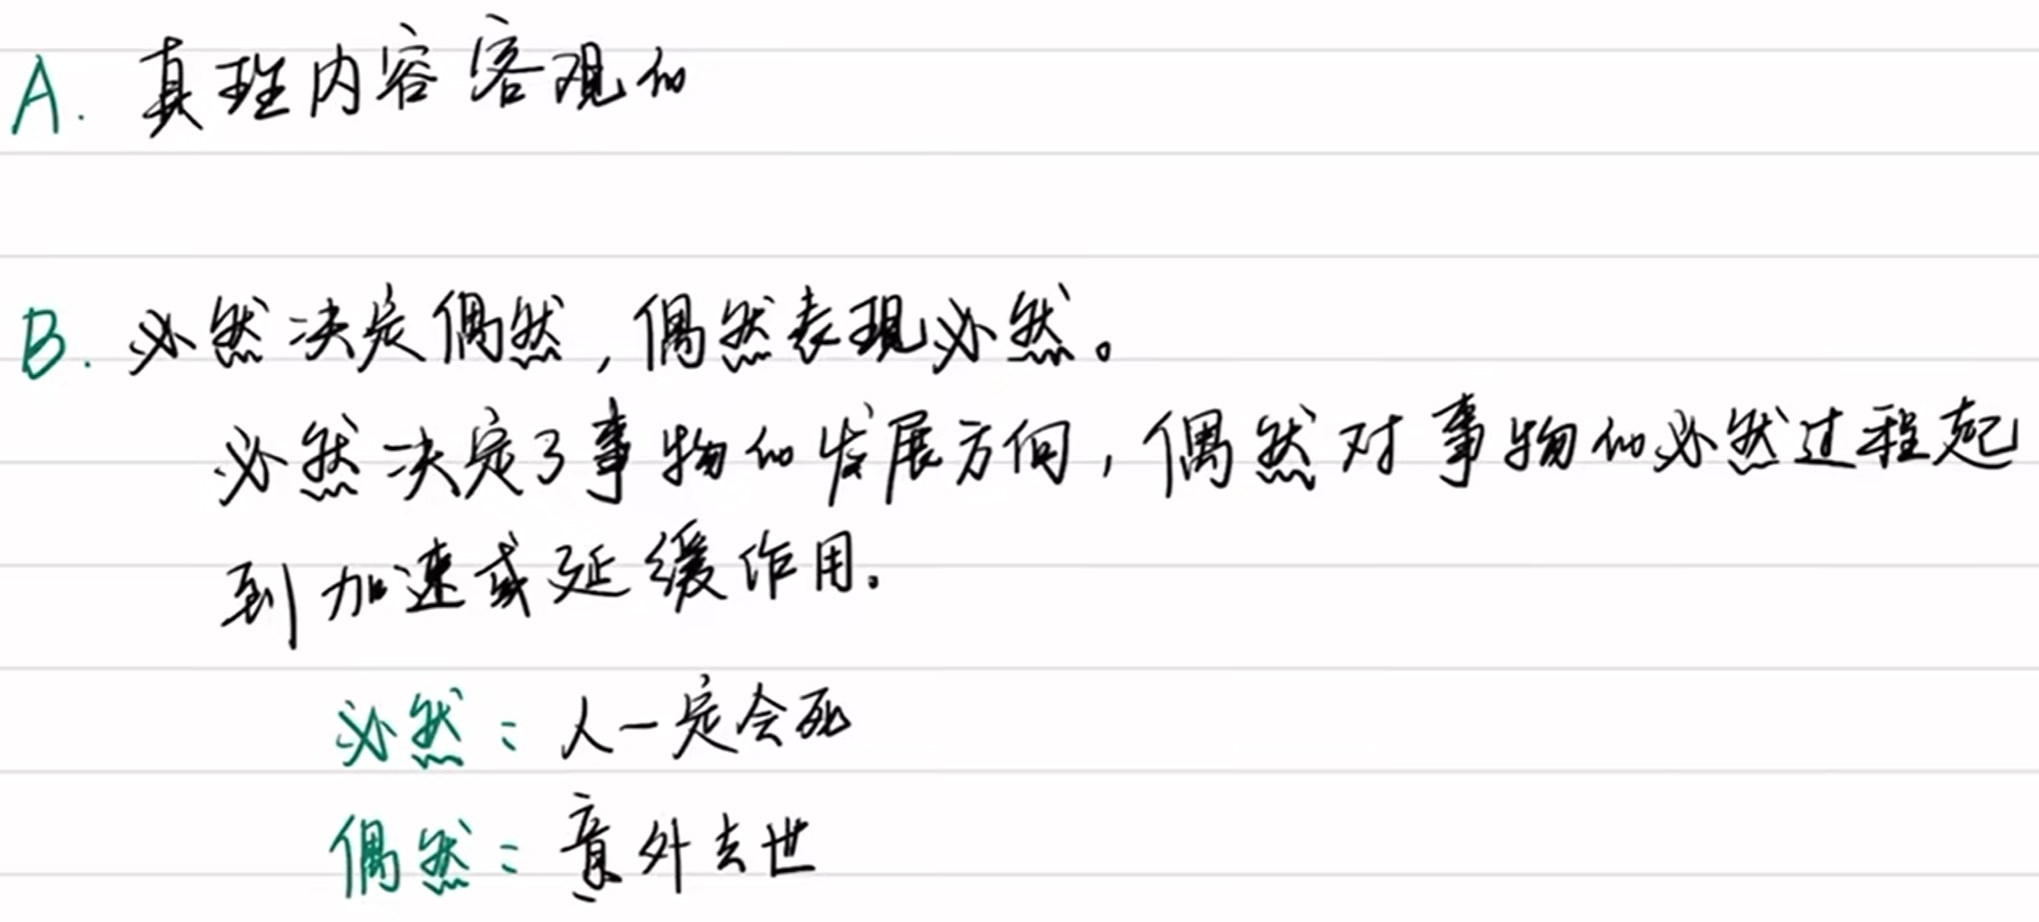 A. 真理内容客观的
B. 必然决定偶然,偶然表现必然。
必然决定了事物的发展方向,偶然对事物的必然过程起
到加速或延缓作用。
必然:人一定会死
偶然:意外去世